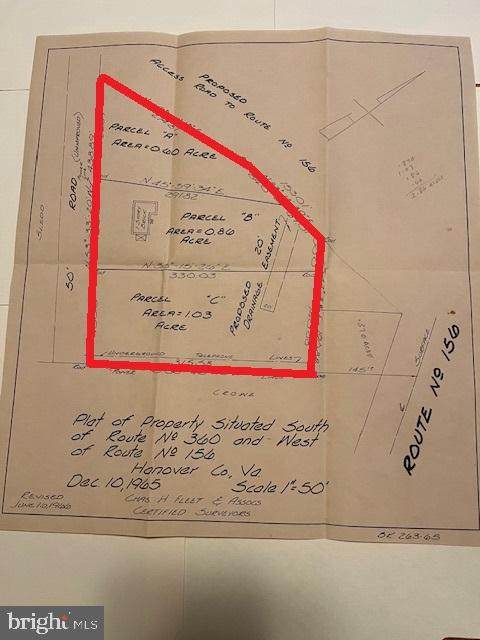 PROPOSED
ACCESS ROAD TO ROUTE Nº 156
PARCEL "A"
AREA=0.60 ACRE
N 45°39'34"E
291.82
PARCEL "B"
AREA=0.86
ACRE
20'
PROPOSED
DRAINAGE EASEMENT
20
193.01
SLEDD
50' ROAD (UNIMPROVED)
438.89
N 38°-15'-26"E
330.03
PARCEL "C"
AREA=1.03
ACRE
UNDERGROUND TELEPHONE LINES
Rod
POWER
LINES
Rod
145'±
CRONE
SURFACE
ROUTE Nº 156
Plat of Property Situated South
of Route Nº 360 and West
of Route Nº 156
Hanover Co, Va.
Dec 10, 1965 Scale 1"=50'
CHAS H FLEET & ASSOCS
CERTIFIED SURVEYORS
REVISED
JUNE 10, 1966
BK 263-65
bright MLS